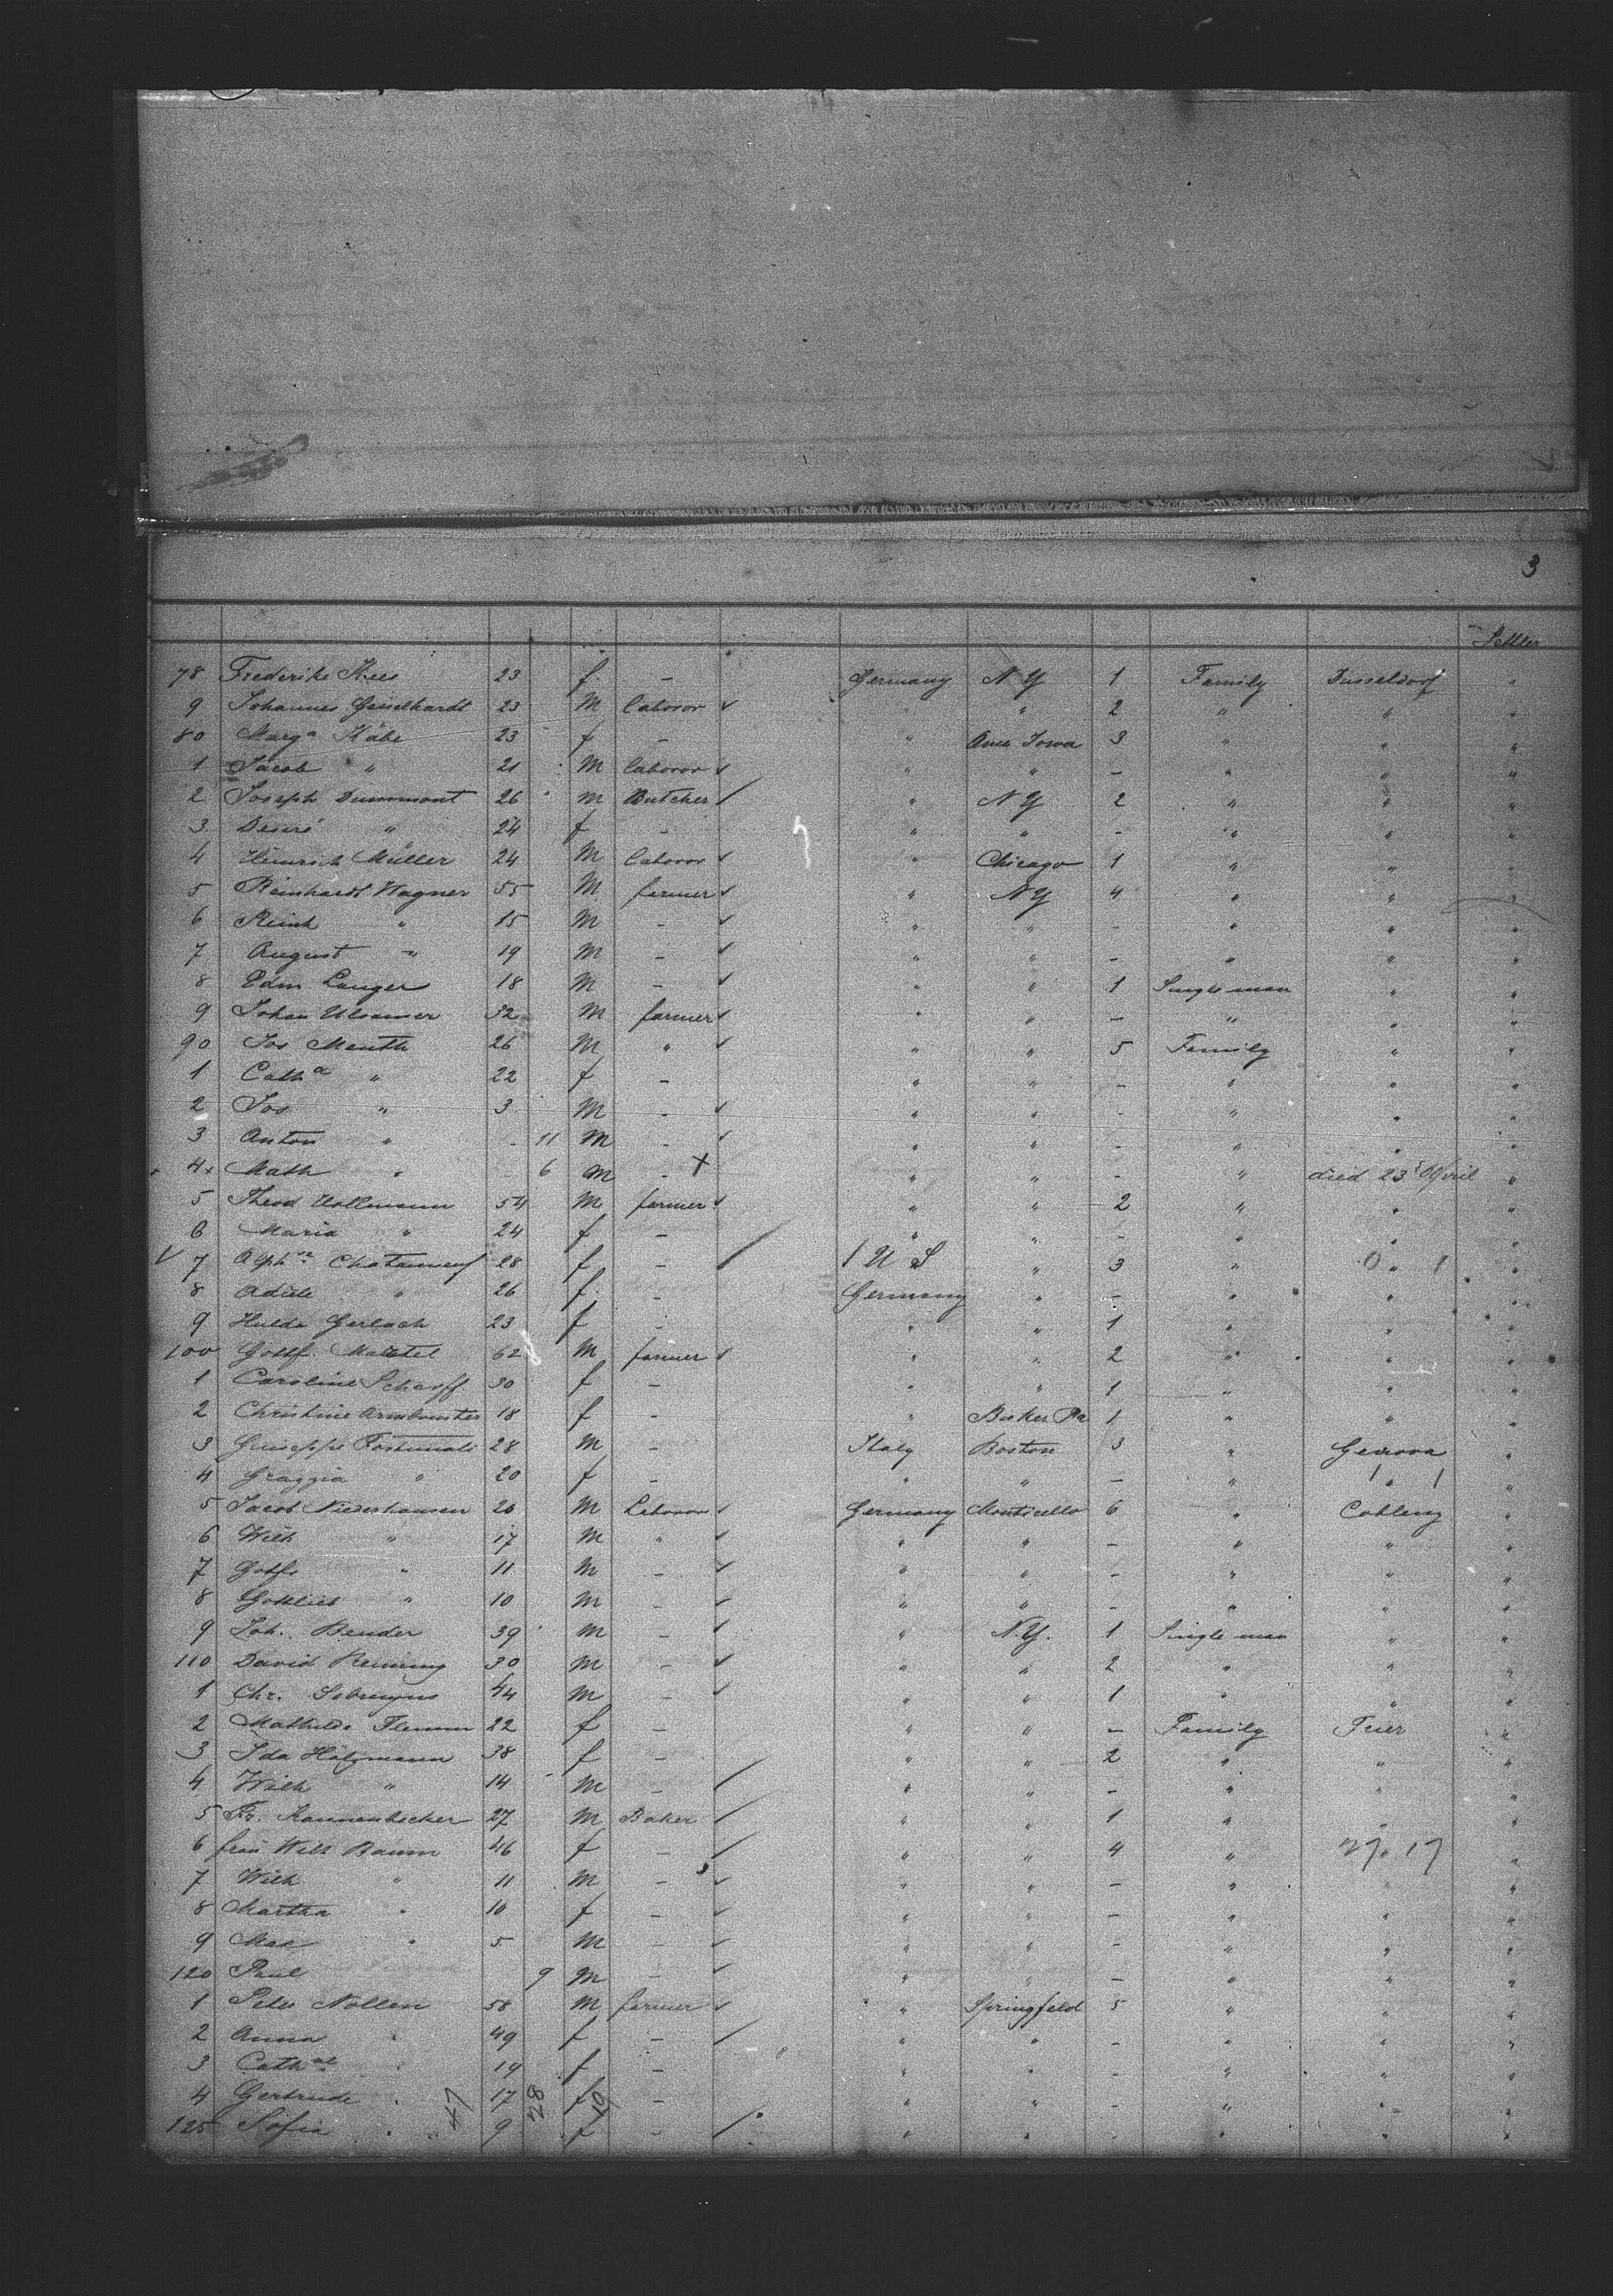 3
Settler
78 Frederike Kees 23 f. – Germany N Y 1 Family Dusseldorf "
9 Johannes Geiselhardt 23 M labovor ✓ " " 2 " " "
80 Marg a Käbe 23 f – " Iowa 3 " " "
1 Jacob " 21 M labovor ✓ " " – " " "
2 Joseph Dummont 26 M Butcher / " N Y 2 " " "
3 Desiré " 24 f – " " – " " "
4 Heinrich Müller 24 M labovor ✓ " Chicago 1 " " "
5 Reinhardt Wagner 55 M farmer ✓ " N Y 4 " " "
6 Reinh " 15 M – ✓ " " – " " "
7 August " 19 M – ✓ " " – " " "
8 Edm Langer 18 M – ✓ " " 1 Single man " "
9 Johan Ulsamer 32 M farmer ✓ " " – " " "
90 Jos Menth 26 M " ✓ " " 5 Family " "
1 Cath a " 22 f – " " – " " "
2 Jos " 3 M – ✓ " " – " " "
3 Anton " – 11 M – ✓ " " – " " "
4 x Math " – 6 M – X " " – " died 23 April "
5 Theod Hollmann 54 M farmer ✓ " " 2 " " "
6 Maria " 24 f – " " – " " "
✓ 7 28 f – / 1 U S " 3 " 0 " 1 "
8 Adele " 26 f. – Germany " – " " "
9 Hulda Gerlach 23 f – " " 1 " " "
100 Gottf. 62 M farmer ✓ " " 2 " " "
1 Caroline Scharff 30 f – " " 1 " " "
2 Christine Armbruster 18 f – " Pa 1 " " "
3 Guiseppe Fortunati 28 M – Italy Boston 3 " Genova "
4 Graggia " 20 f – " " – " 1 " 1 "
5 Jacob Niederhausen 20 M Labovor ✓ Germany Monticello 6 " Coblenz "
6 Wilh " 17 M " ✓ " " – " " "
7 Gotfr " 11 M – ✓ " " – " " "
8 Gottlieb " 10 M – ✓ " " – " " "
9 Joh. Bender 39 M – ✓ " N.Y. 1 Single man " "
110 David Renning 30 M – ✓ " " 2 " " "
1 Chr. 44 M – ✓ " " 1 " " "
2 Mathilde Flemm 22 f – " " – Family Trier "
3 Ida Hölzmann 38 f – " " 2 " " "
4 Wilh " 14 M – / " " – " " "
5 Fr. Kannenbecker 27 M Baker / " " 1 " " "
6 frau Wilh Baum 46 f – / " " 4 " 27 " 17 "
7 Wilh " 11 M – ✓ " " – " " "
8 Martha " 10 f – ✓ " " – " " "
9 Max " 5 M – ✓ " " – " " "
120 Paul 9 M – ✓ " " – " " "
1 Peter Nollen 58 M farmer ✓ " Springfeld 5 " " "
2 Anna " 49 f – / " " – " " "
3 Cath ne " 19 f – " " – " " "
4 Gertrude " 17 f – " " – " " "
125 Sofia " 9 f – / " " – " " "
47 28 19